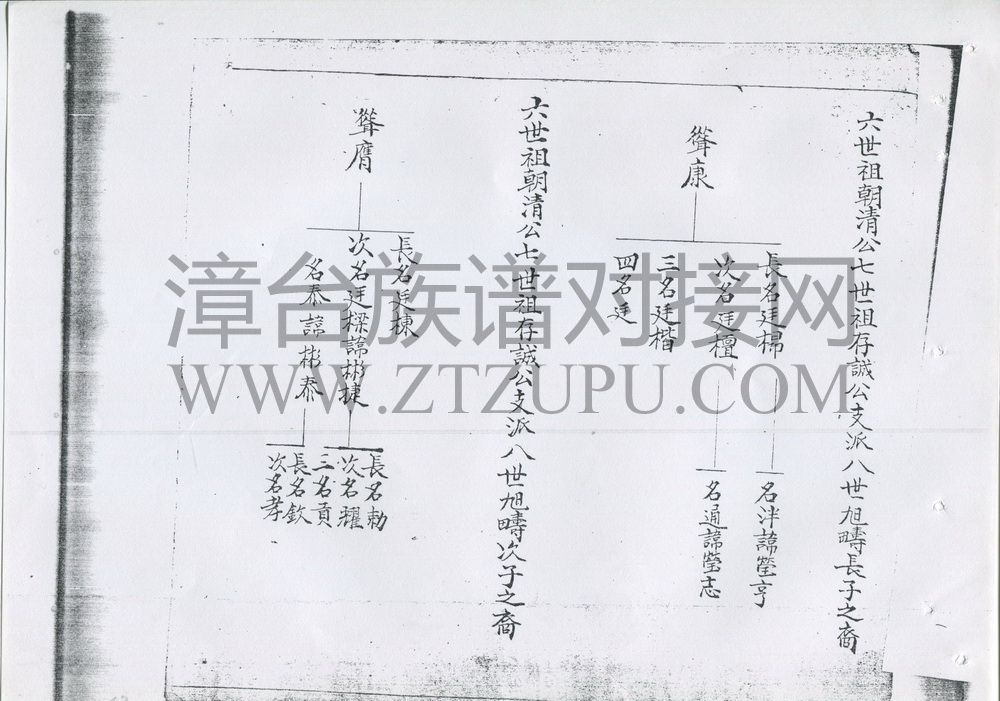 六世祖朝清公七世祖存誠公支派八世旭疇長子之裔
聳康
長名廷楊
次名廷檀
三名廷楷
四名廷
名泮諱瑩亨
名通諱瑩志
六世祖朝清公七世祖存誠公支派八世旭疇次子之裔
聳膺
長名廷棟
次名廷樑諱彬捷
名泰諱彬泰
長名勅
次名耀
三名貢
長名欽
次名孝
漳台族谱对接网
WWW.ZTZUPU.COM